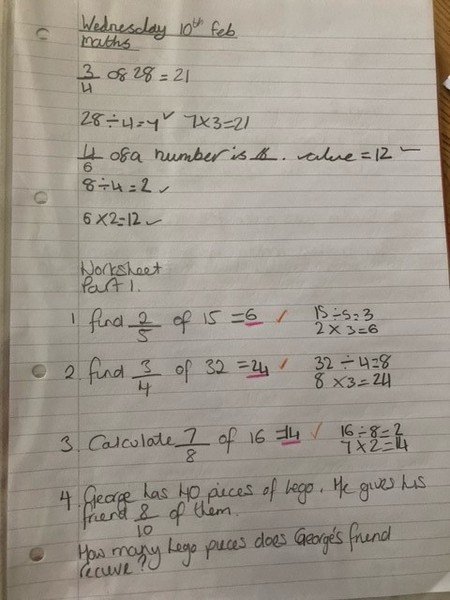 Wednesday 10th Feb
Maths
3/4 of 28 = 21
28÷4=7✓ 7×3=21
4/6 of a number is 8. value = 12
8÷4=2 ✓
6×2=12 ✓
Worksheet
Part 1.
1 find 2/5 of 15 =6 ✓ 15÷5=3
2×3=6
2. find 3/4 of 32 =24 ✓ 32÷4=8
8×3=24
3. Calculate 7/8 of 16 =14 ✓ 16÷8=2
7×2=14
4. George has 40 pieces of Lego. He gives his
friend 8/10 of them.
How many Lego pieces does George's friend
recieve?